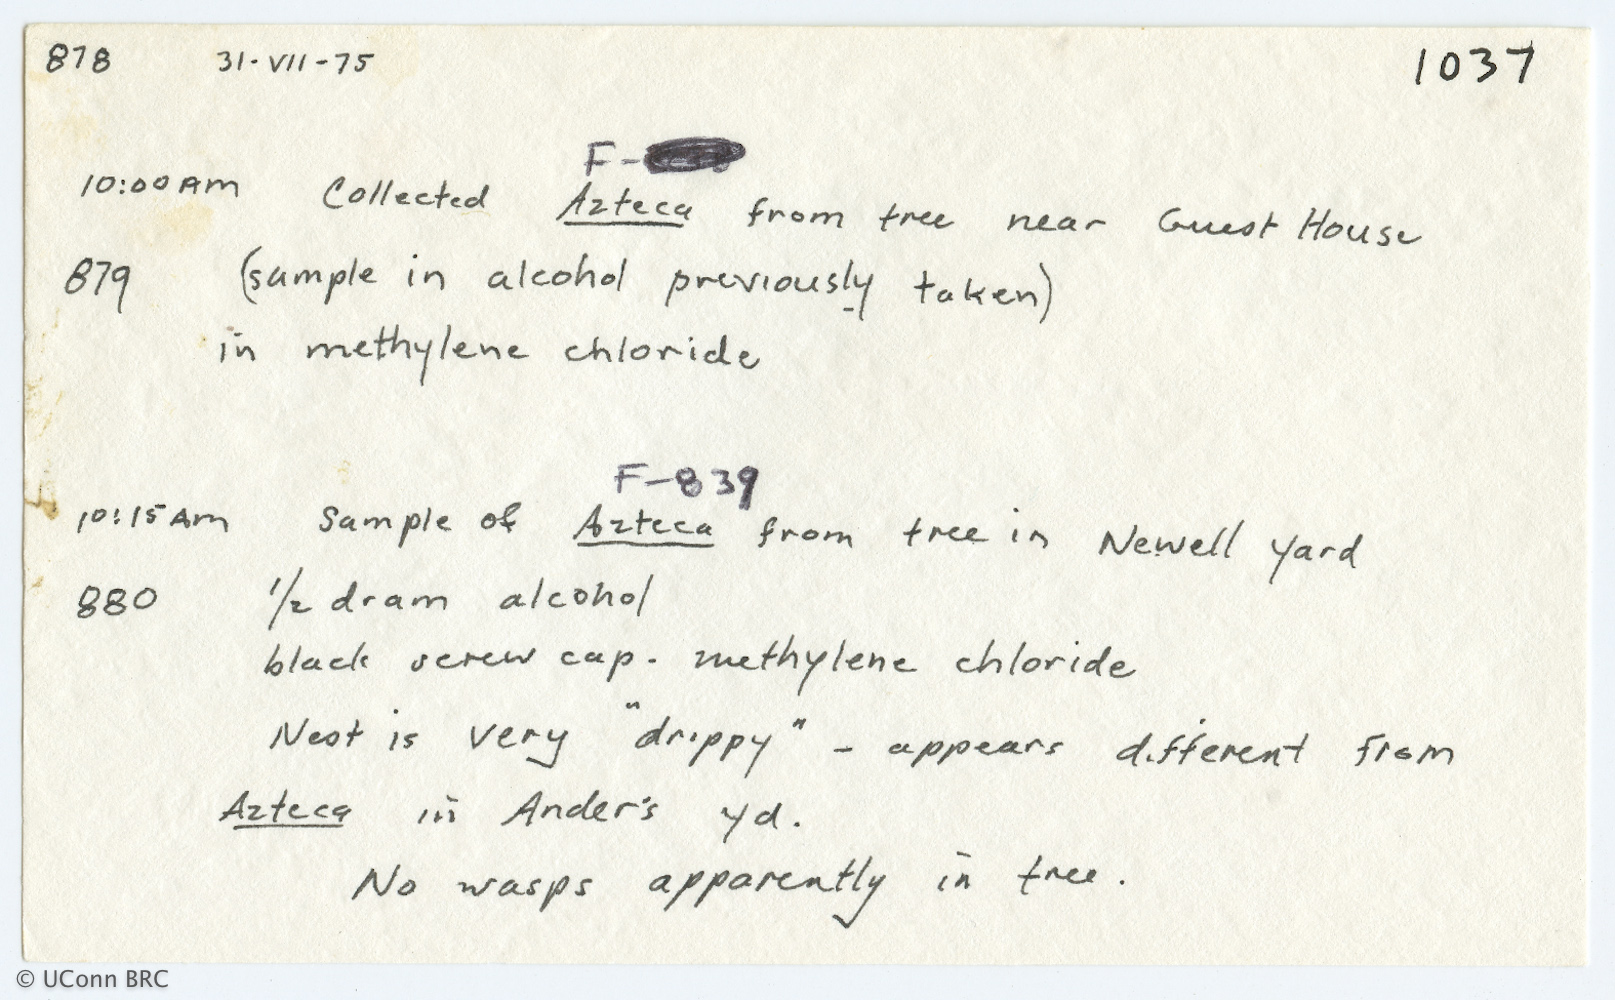 878 31-VII-75 1037
F-
10:00 AM Collected Azteca from tree near Guest House
879 (sample in alcohol previously taken)
in methylene chloride
F-839
10:15 AM Sample of Azteca from tree in Newell yard
880 1/2 dram alcohol
black screw cap. methylene chloride
Nest is very "drippy" - appears different from
Azteca in Ander's yd.
No wasps apparently in tree.
© UConn BRC